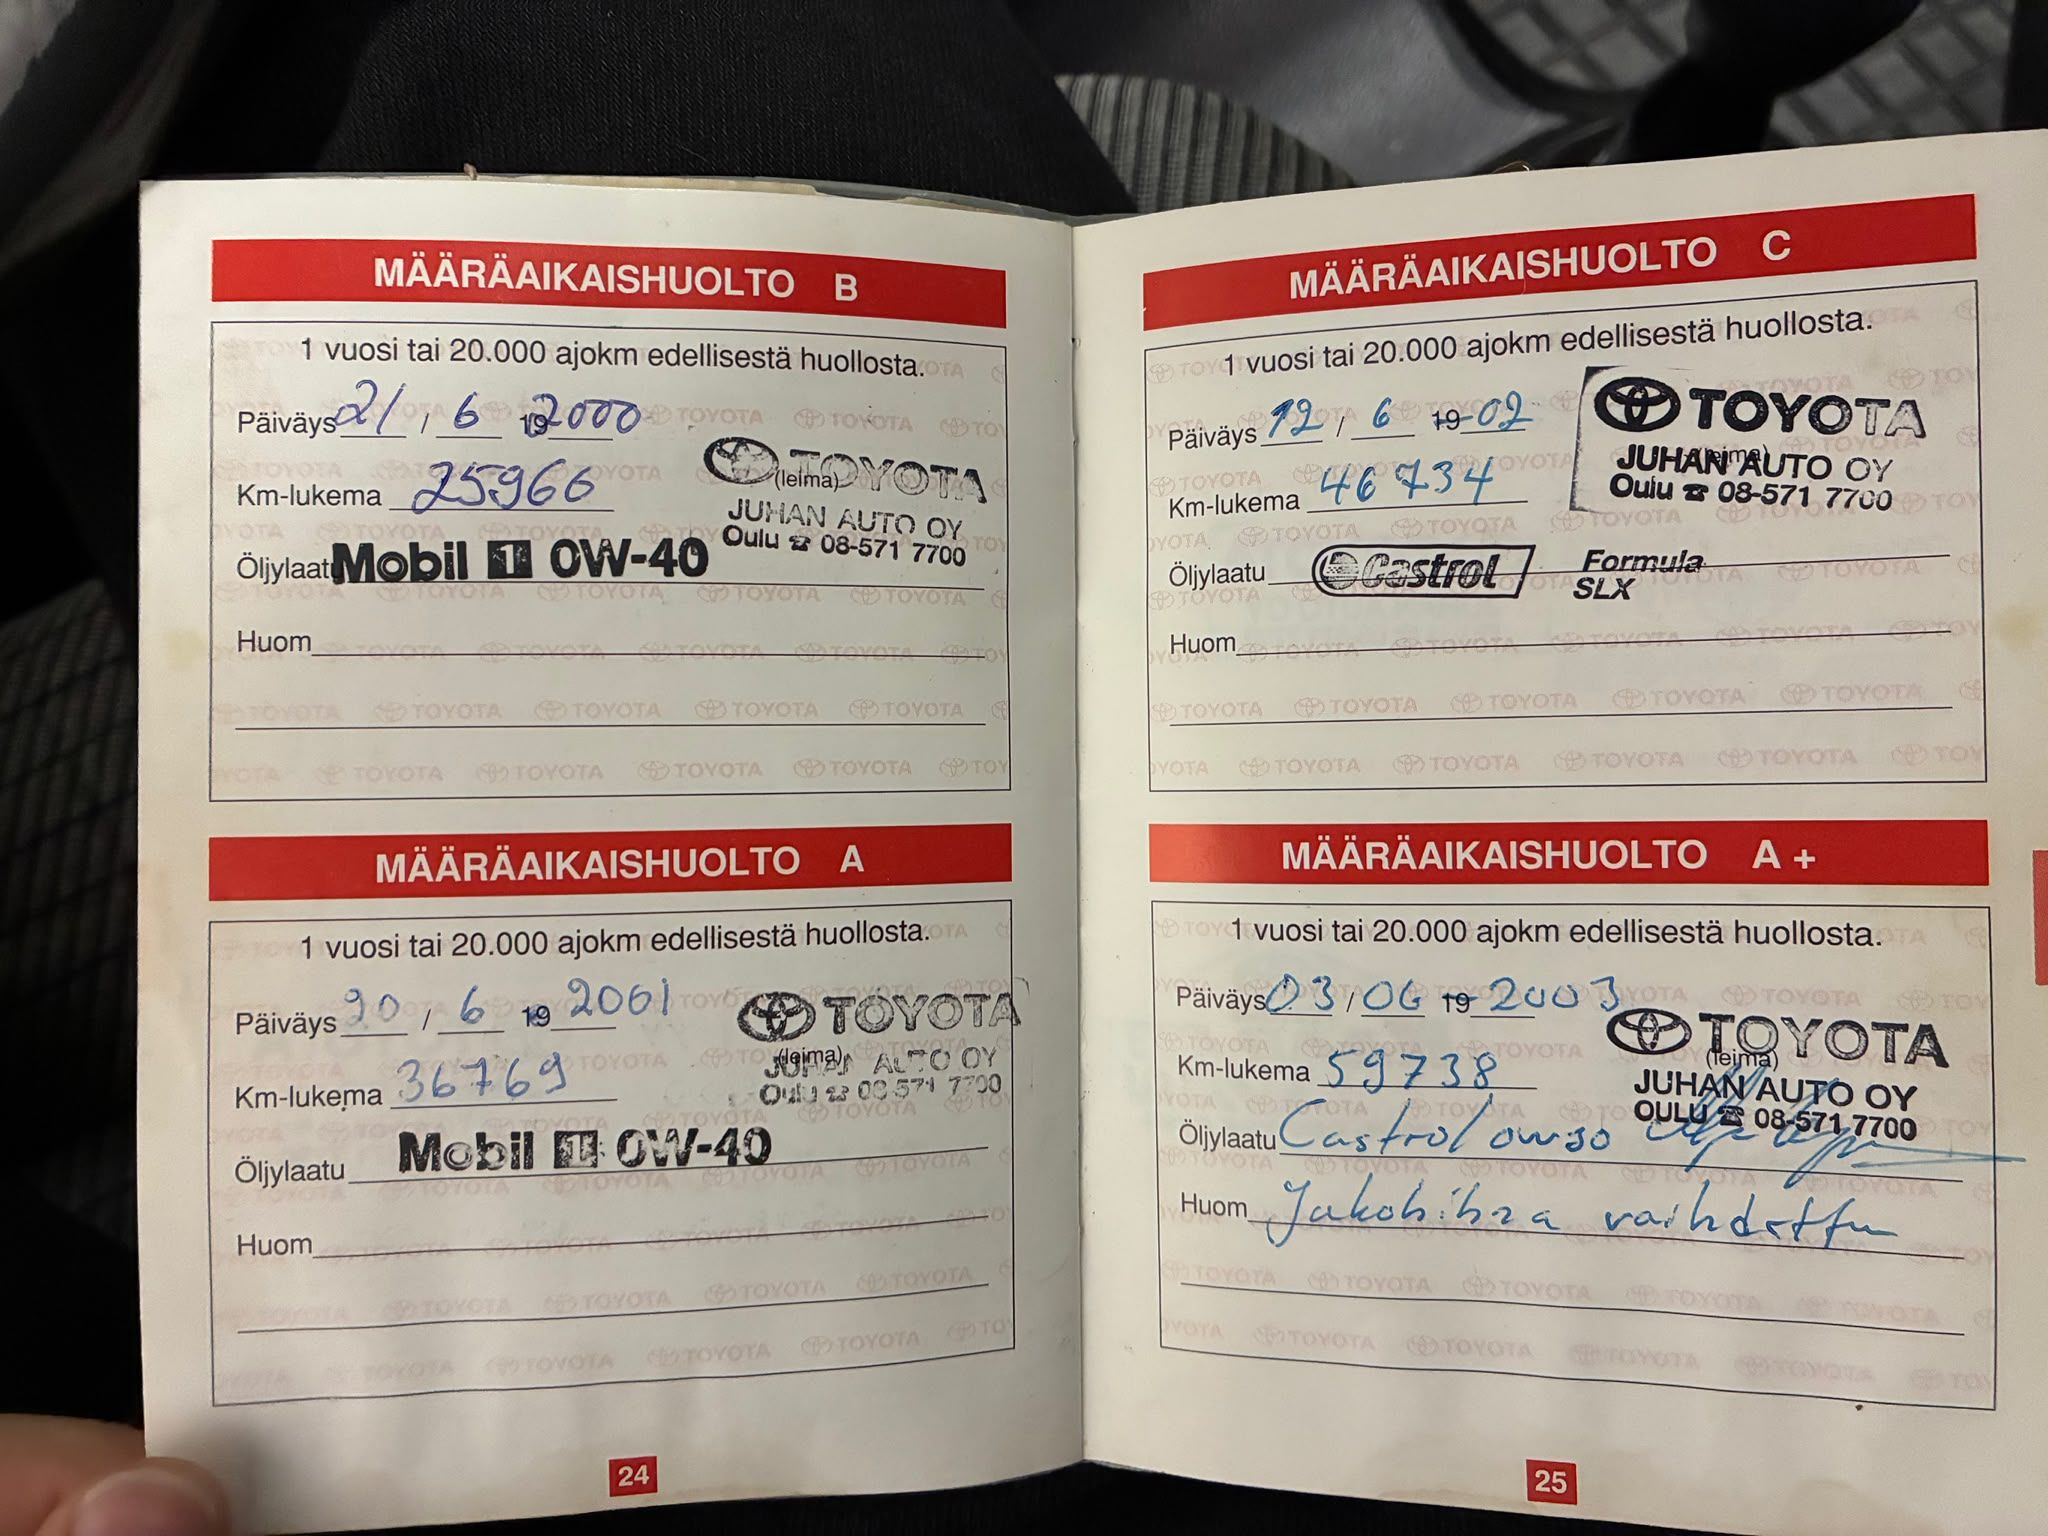 MÄÄRÄAIKAISHUOLTO B
1 vuosi tai 20.000 ajokm edellisestä huollosta.
Päiväys 21 / 6 19 2000
Km-lukema 25966
TOYOTA
(leima)
JUHAN AUTO OY
Oulu ☎ 08-571 7700
Öljylaatu Mobil 1 0W-40
Huom
MÄÄRÄAIKAISHUOLTO A
1 vuosi tai 20.000 ajokm edellisestä huollosta.
Päiväys 20 / 6 19 2001
Km-lukema 36769
TOYOTA
(leima)
JUHAN AUTO OY
Oulu ☎ 08-571 7700
Öljylaatu Mobil 1 0W-40
Huom
24
MÄÄRÄAIKAISHUOLTO C
1 vuosi tai 20.000 ajokm edellisestä huollosta.
Päiväys 12 / 6 19 02
Km-lukema 46734
TOYOTA
(leima)
JUHAN AUTO OY
Oulu ☎ 08-571 7700
Öljylaatu Castrol Formula
SLX
Huom
MÄÄRÄAIKAISHUOLTO A +
1 vuosi tai 20.000 ajokm edellisestä huollosta.
Päiväys 03 / 06 19 2003
Km-lukema 59738
TOYOTA
(leima)
JUHAN AUTO OY
OULU ☎ 08-571 7700
Öljylaatu Castrol 0W30
Huom Jakohihna vaihdettu
25